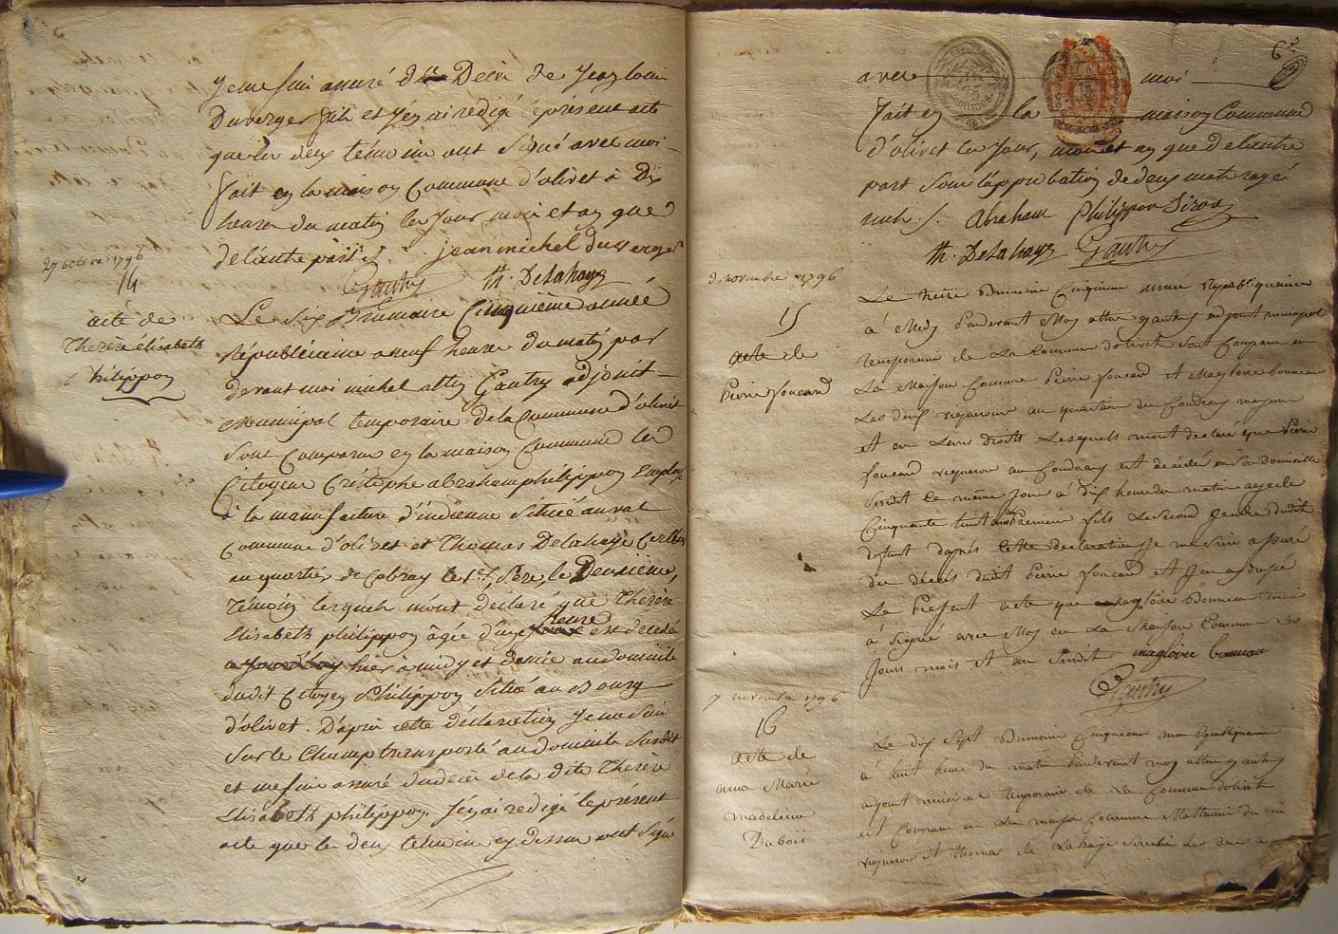 Je me suis assuré du Decès de Jean louis
Duverger fils et j'en ai redigé le présent acte
que les deux témoins ont Signé avec moi
fait en la maison Commune d'olivet à Dix
heures du matin les Jour, mois et an que
de l'autre part ./. jean michel duverger
Gautry th. Delahaye
27 octobre 1796
14
acte de
Therese élisabeth
philippon
Le Six Brumaire Cinquième année
républicaine a neuf heure du matin par
devant moi michel Gautry adjoint
municipal temporaire de la Commune d'olivet
sont Comparus en la maison Commune les
Citoyens Cristophe abraham philippon Employé
à la manufacture d'indienne située au val
Commune d'olivet et Thomas Delahaye
au quartier de le Deuxième,
témoins lesquels m'ont déclaré que Therese
Elisabeth philippon âgée d'une heure est decedée
hier à midy et demie au domicile
dudit Citoyen Philippon Situé au Bourg
d'olivet. D'après cette déclaration Je me Suis
Sur le Champ transporté au domicile Susdit
et me suis assuré du decès de la dite Therese
Elisabeth philippon. J'en ai redigé le présent
acte que les deux témoins cy dessus ont Signé
avec moi
fait en la maison Commune
d'olivet les Jour, mois et an que de l'autre
part Sous l'approbation de deux mots rayés
nuls ./. Abraham philippon
th. Delahaye Gautry
3 novembre 1796
15
Acte de
Pierre foucard
Le treize Brumaire Cinquieme annee Republiquaine
à Midy Pardevant Moy Gautry adjoint municipal
temporaire de La Commune d'olivet Sont Comparu en
La Maison Commune Pierre foucard et Magloire bonneau
Les deux vignerons au quartier du Coudray majeurs
et en Leurs droits Lesquels m'ont declaré que Pierre
foucard vigneron au Coudray est décédé en Son domicille
le même Jour à dix heures du matin agé de
Cinquante fils Le Second Gendre dudit
defunt dapres cette declaration Je me Suis assuré
du décès dudit Pierre foucard et J'en ay dressé
Le Présent acte que magloire Bonneau
à Signé avec Moy en La Maison Commune Les
Jours mois et an Susdit magloire bonneau
Gautry
7 novembre 1796
16
acte de
anne Marie
madeleine
Dubois
Le dix Sept Brumaire Cinquieme annee
à huit heure du matin Pardevant moy Gautry
adjoint municipal temporaire de La Commune dolivet
est Comparu en La maison Commune
vigneron et thomas de La haye